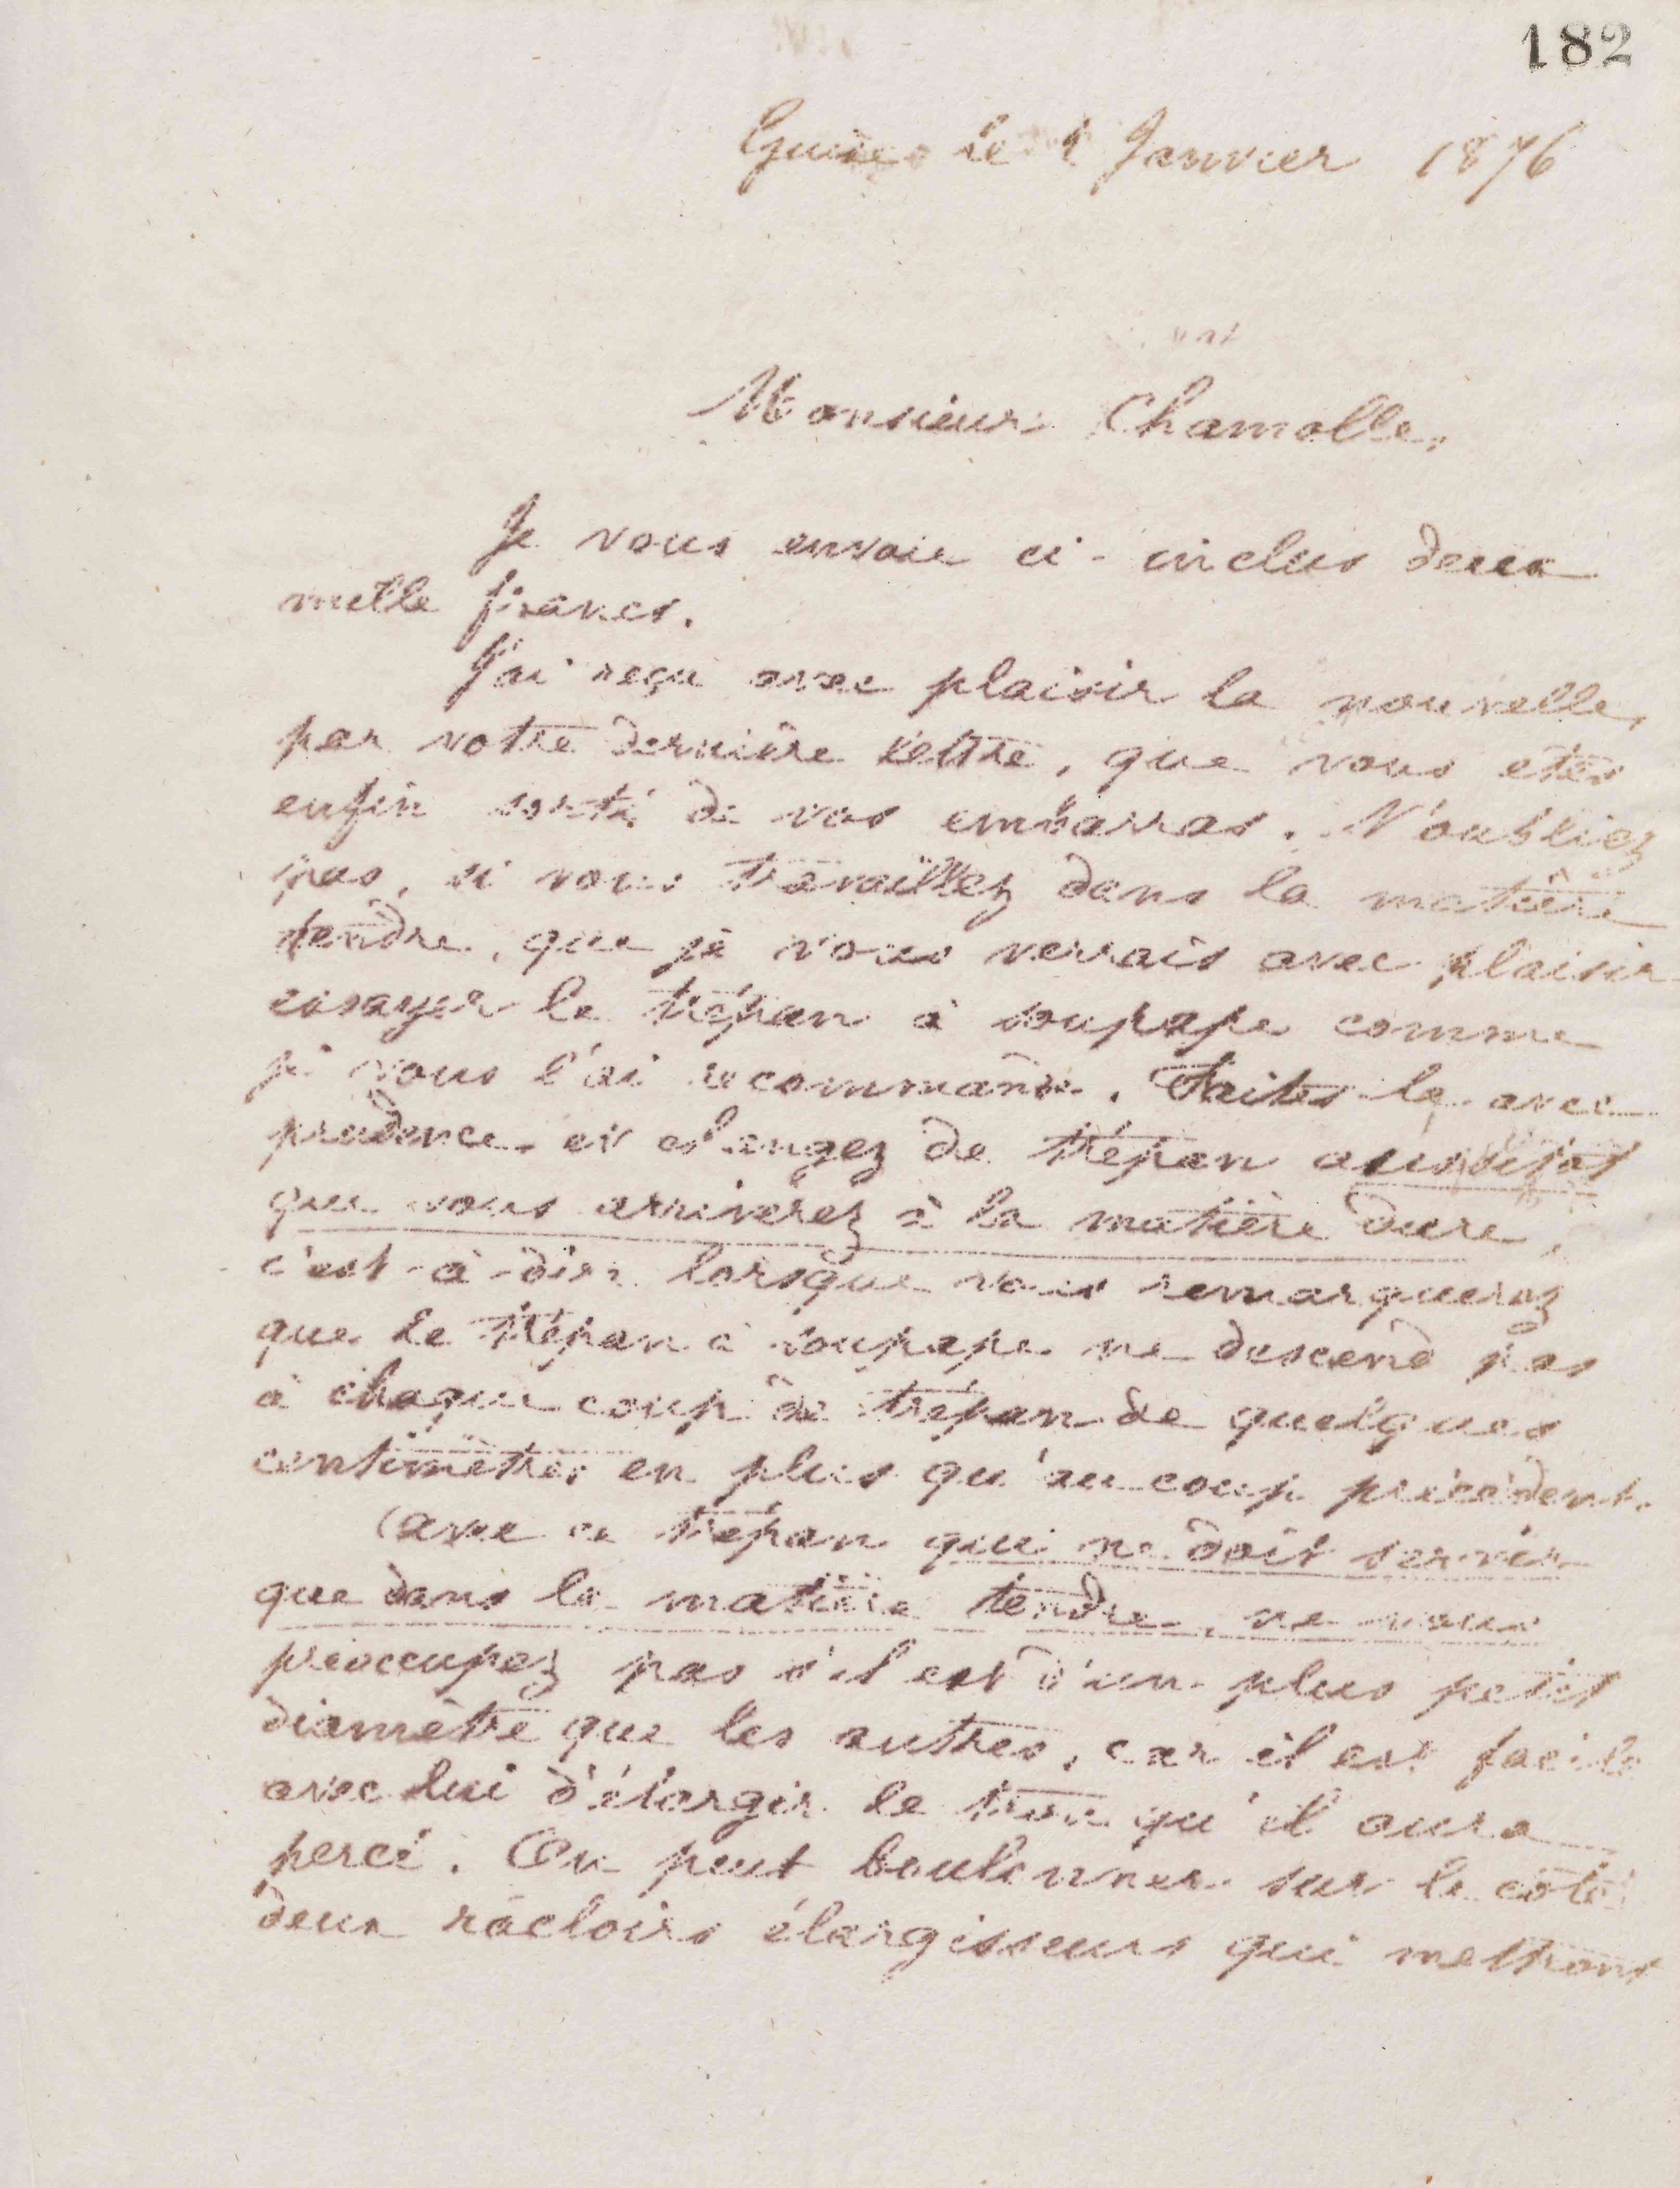 182
Guise le 1 Janvier 1876
Monsieur Chamolle,
Je vous envoie ci-inclus deux
mille francs.
J'ai reçu avec plaisir la nouvelle,
par votre dernière lettre, que vous etes
enfin sorti de vos embarras. N'oubliez
pas, si vous travaillez dans la matière
tendre, que je vous verrais avec plaisir
essayer le trépan à soupape comme
je vous l'ai recommandé. Faites-le avec
prudence et changez de trépan aussitôt
que vous arriverez à la matière dure,
c'est-à-dire lorsque vous remarquerez
que le trépan à soupape ne descend pas
à chaque coup de trépan de quelques
centimètres en plus qu'au coup précédent.
Avec ce trépan qui ne doit servir
que dans la matière tendre, ne vous
préoccupez pas s'il est d'un plus petit
diamètre que les autres, car il est facile
avec lui d'élargir le trou qu'il aura
percé. On peut boulonner sur le côté
deux râcloirs élargisseurs qui mettront